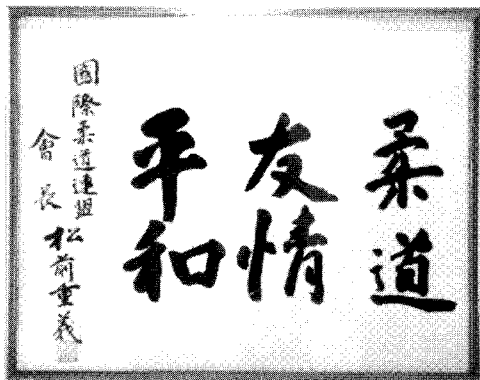 柔道
友情
平和
國際柔道連盟
會長
松前重義